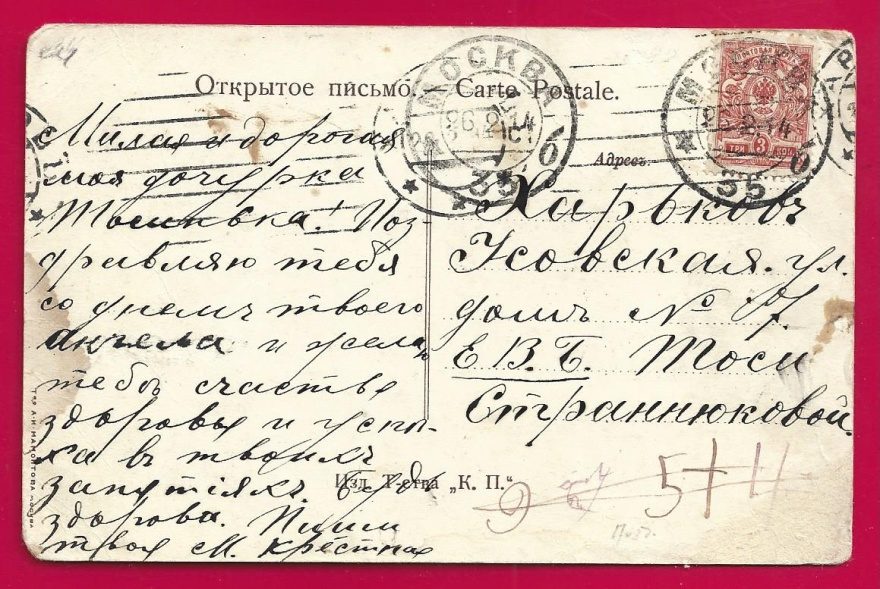 Открытое письмо. — Carte Postale.
МОСКВА
26.2.14
35
МОСКВА
2.14
35
ТРИ 3 КОП
Адресъ
Милая и дорогая
моя дочурка
Тосинька! Поз-
дравляю тебя
со днемъ твоего
ангела и желаю
тебѣ счастья
здоровья и успѣ-
ха въ твоихъ
занятіяхъ. Будь
здорова. Пиши
твоя М. Крёстная
Харьковъ
Усовская ул.
домъ № 7
Е. В. Б. Тоси
Страннюковой.
Изд. Т-ства „К. П."
9
5+
Т-во А.И. МАМОНТОВА МОСКВА